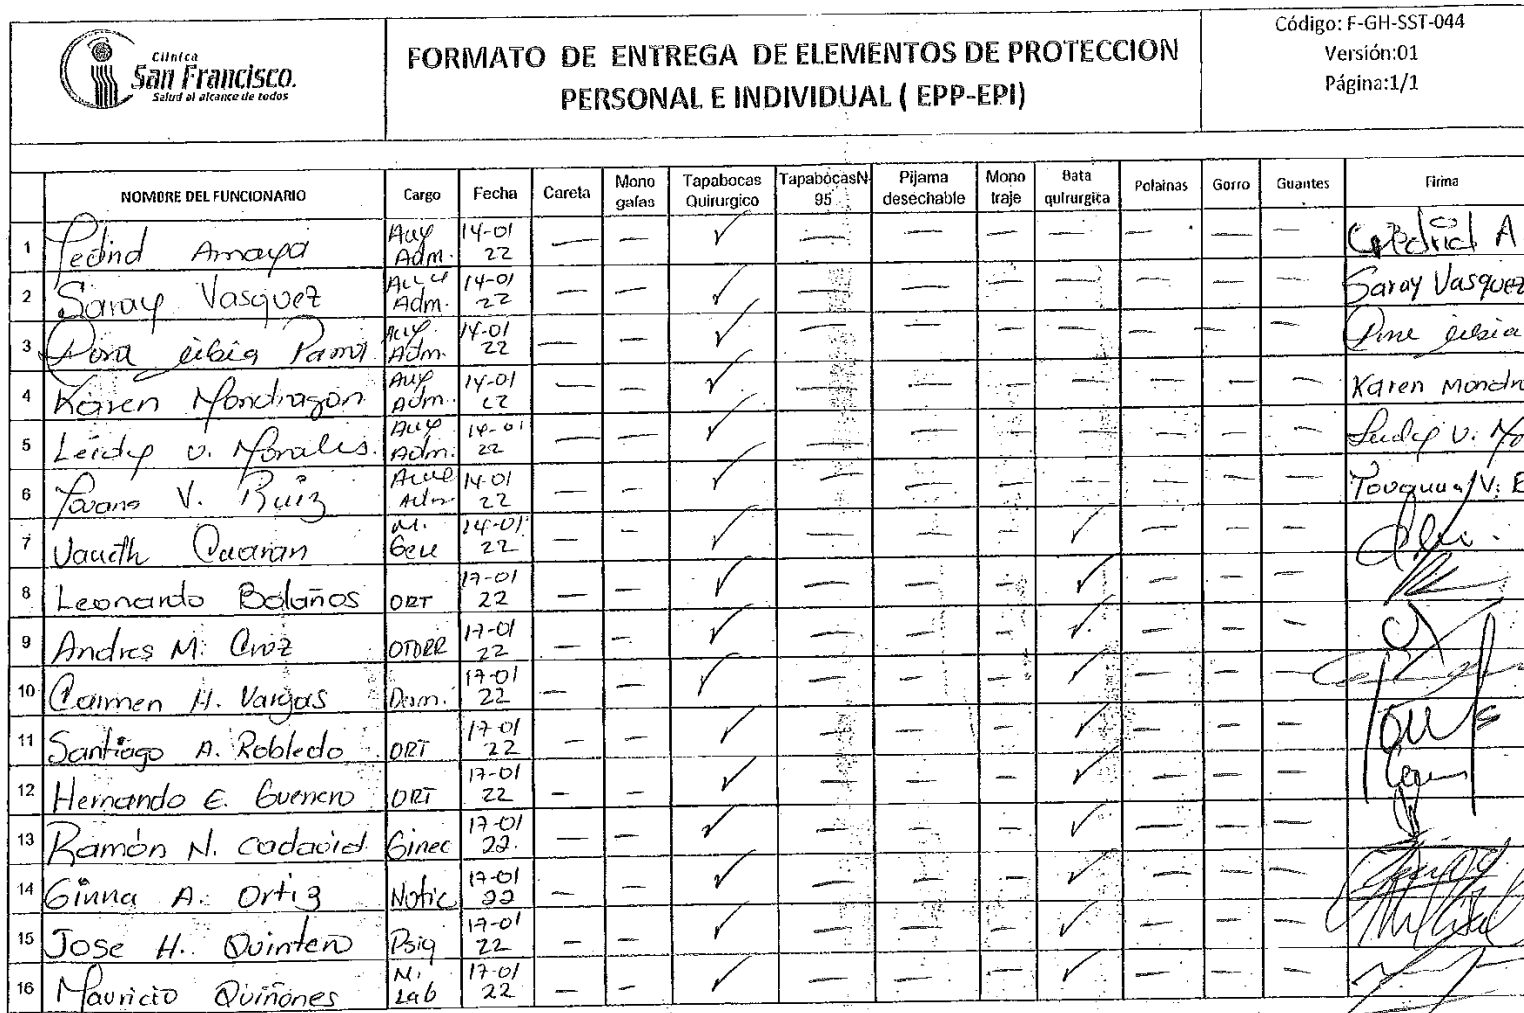 Clínica
San Francisco.
Salud al alcance de todos
FORMATO DE ENTREGA DE ELEMENTOS DE PROTECCION
PERSONAL E INDIVIDUAL ( EPP-EPI)
Código: F-GH-SST-044
Versión:01
Página:1/1
NOMBRE DEL FUNCIONARIO Cargo Fecha Careta Mono gafas Tapabocas Quirurgico TapabocasN-95 Pijama desechable Mono traje Bata quirurgica Polainas Gorro Guantes Firma
1 Amaya Aux Adm. 14-01 22 — — ✓ — — — — — — — A
2 Saray Vasquez Aux Adm. 14-01 22 — — ✓ — — — — — — — Saray Vasquez
3 Aux Adm. 14-01 22 — — ✓ — — — — — — —
4 Karen Mondragon Aux Adm. 14-01 22 — — ✓ — — — — — — — Karen Mondr
5 Leidy v. Morales. Aux Adm. 14-01 22 — — ✓ — — — — — — — Leidy v. Mo
6 V. Ruiz Aux Adm 14-01 22 — — ✓ — — — — — — — V.
7 M. 14-01 22 — — ✓ — — — ✓ — — —
8 Leonardo Bolaños ORT 17-01 22 — — ✓ — — — ✓ — — —
9 Andres M. Cruz 17-01 22 — — ✓ — — — ✓ — — —
10 Carmen H. Vargas Derm. 17-01 22 — — ✓ — — — ✓ — — —
11 Santiago A. Robledo ORT 17-01 22 — — ✓ — — — ✓ — — —
12 Hernando E. Guerrero ORT 17-01 22 — — ✓ — — — ✓ — — —
13 Ramón N. Cadavid. Ginec 17-01 22. — — ✓ — — — ✓ — — —
14 Ginna A. Ortiz 17-01 22 — — ✓ — — — ✓ — — —
15 Jose H. Quintero Psiq 17-01 22 — — ✓ — — — ✓ — — —
16 Mauricio Quiñones M. Lab 17-01 22 — — ✓ — — — ✓ — — —